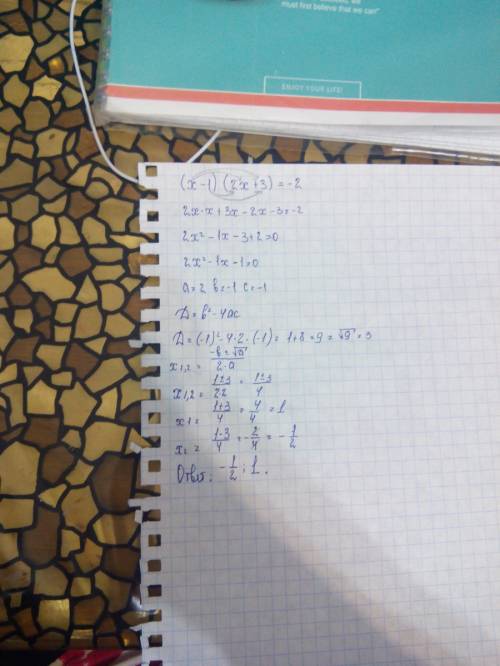 must first believe that we can"
ENJOY YOUR LIFE!
(x-1)(2x+3)=-2
2x·x+3x-2x-3=-2
2x²-1x-3+2=0
2x²-1x-1=0
a=2 b=-1 c=-1
D=b²-4ac
D=(-1)²-4·2·(-1)=1+8=9=√9=3
x1,2=(-b±√D)/(2·a)
x1,2=(1±3)/(2·2)=(1±3)/4
x1=(1+3)/4=4/4=1
x2=(1-3)/4=-2/4=-1/2
Ответ: -1/2; 1.